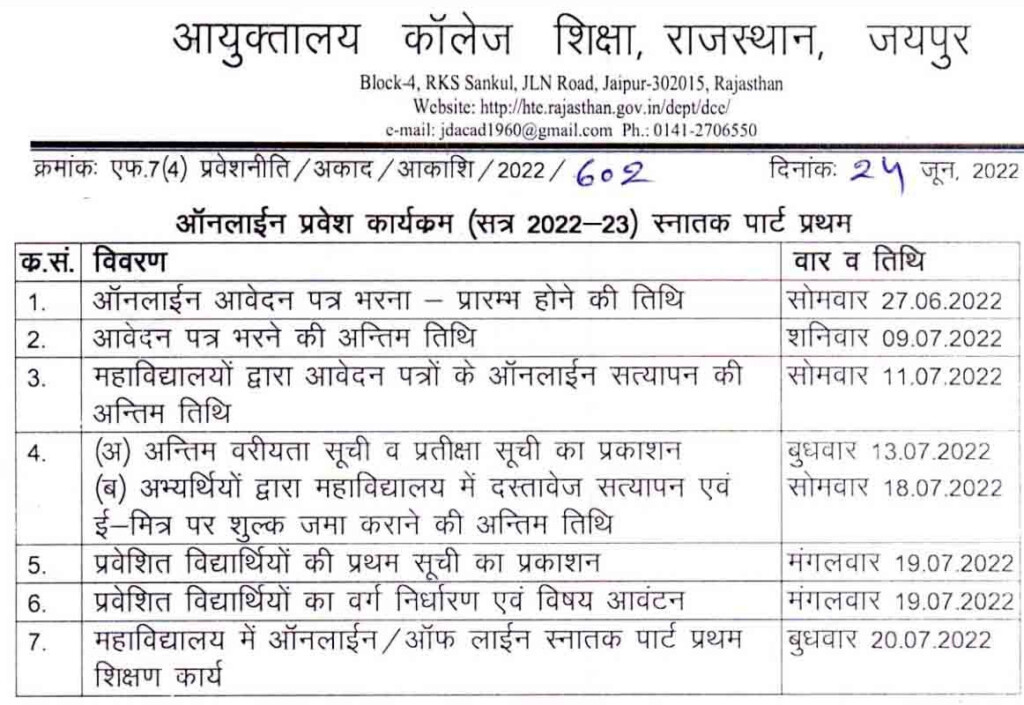 आयुक्तालय कॉलेज शिक्षा, राजस्थान, जयपुर
Block-4, RKS Sankul, JLN Road, Jaipur-302015, Rajasthan
Website: http://hte.rajasthan.gov.in/dept/dce/
e-mail: jdacad1960@gmail.com Ph.: 0141-2706550
क्रमांकः एफ.7(4) प्रवेशनीति/अकाद/आकाशि/2022/602 दिनांकः 24 जून, 2022
ऑनलाईन प्रवेश कार्यक्रम (सत्र 2022–23) स्नातक पार्ट प्रथम
क.सं. विवरण वार व तिथि
1. ऑनलाईन आवेदन पत्र भरना – प्रारम्भ होने की तिथि सोमवार 27.06.2022
2. आवेदन पत्र भरने की अन्तिम तिथि शनिवार 09.07.2022
3. महाविद्यालयों द्वारा आवेदन पत्रों के ऑनलाईन सत्यापन की सोमवार 11.07.2022
अन्तिम तिथि
4. (अ) अन्तिम वरीयता सूची व प्रतीक्षा सूची का प्रकाशन बुधवार 13.07.2022
(ब) अभ्यर्थियों द्वारा महाविद्यालय में दस्तावेज सत्यापन एवं सोमवार 18.07.2022
ई–मित्र पर शुल्क जमा कराने की अन्तिम तिथि
5. प्रवेशित विद्यार्थियों की प्रथम सूची का प्रकाशन मंगलवार 19.07.2022
6. प्रवेशित विद्यार्थियों का वर्ग निर्धारण एवं विषय आवंटन मंगलवार 19.07.2022
7. महाविद्यालय में ऑनलाईन/ऑफ लाईन स्नातक पार्ट प्रथम बुधवार 20.07.2022
शिक्षण कार्य